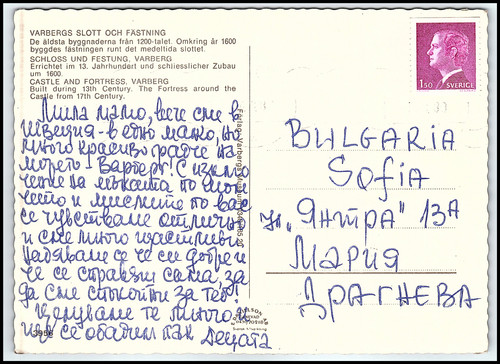 VARBERGS SLOTT OCH FÄSTNING
De äldsta byggnaderna från 1200-talet. Omkring år 1600
byggdes fästningen runt det medeltida slottet.
SCHLOSS UND FESTUNG, VARBERG
Errichtet im 13. Jahrhundert und schliesslicher Zubau
um 1600.
CASTLE AND FORTRESS, VARBERG
Built during 13th Century. The Fortress around the
Castle from 17th Century.
Мила мамо, вече сме в
Швеция - в едно малко, но
много красиво градче на
морето - Варберг! С изклю-
чение на мъката по мом-
чето и мислите по вас
се чувстваме отлично
и сме много щастливи
Надяваме се че си добре и
че се справяш сама, за
да сме спокойни за теб!
Целуваме те много и
ще се обадим пак Децата
3958
1.50 SVERIGE
BULGARIA
Sofia
ул. "Янтра" 13А
Мария
Драгнева